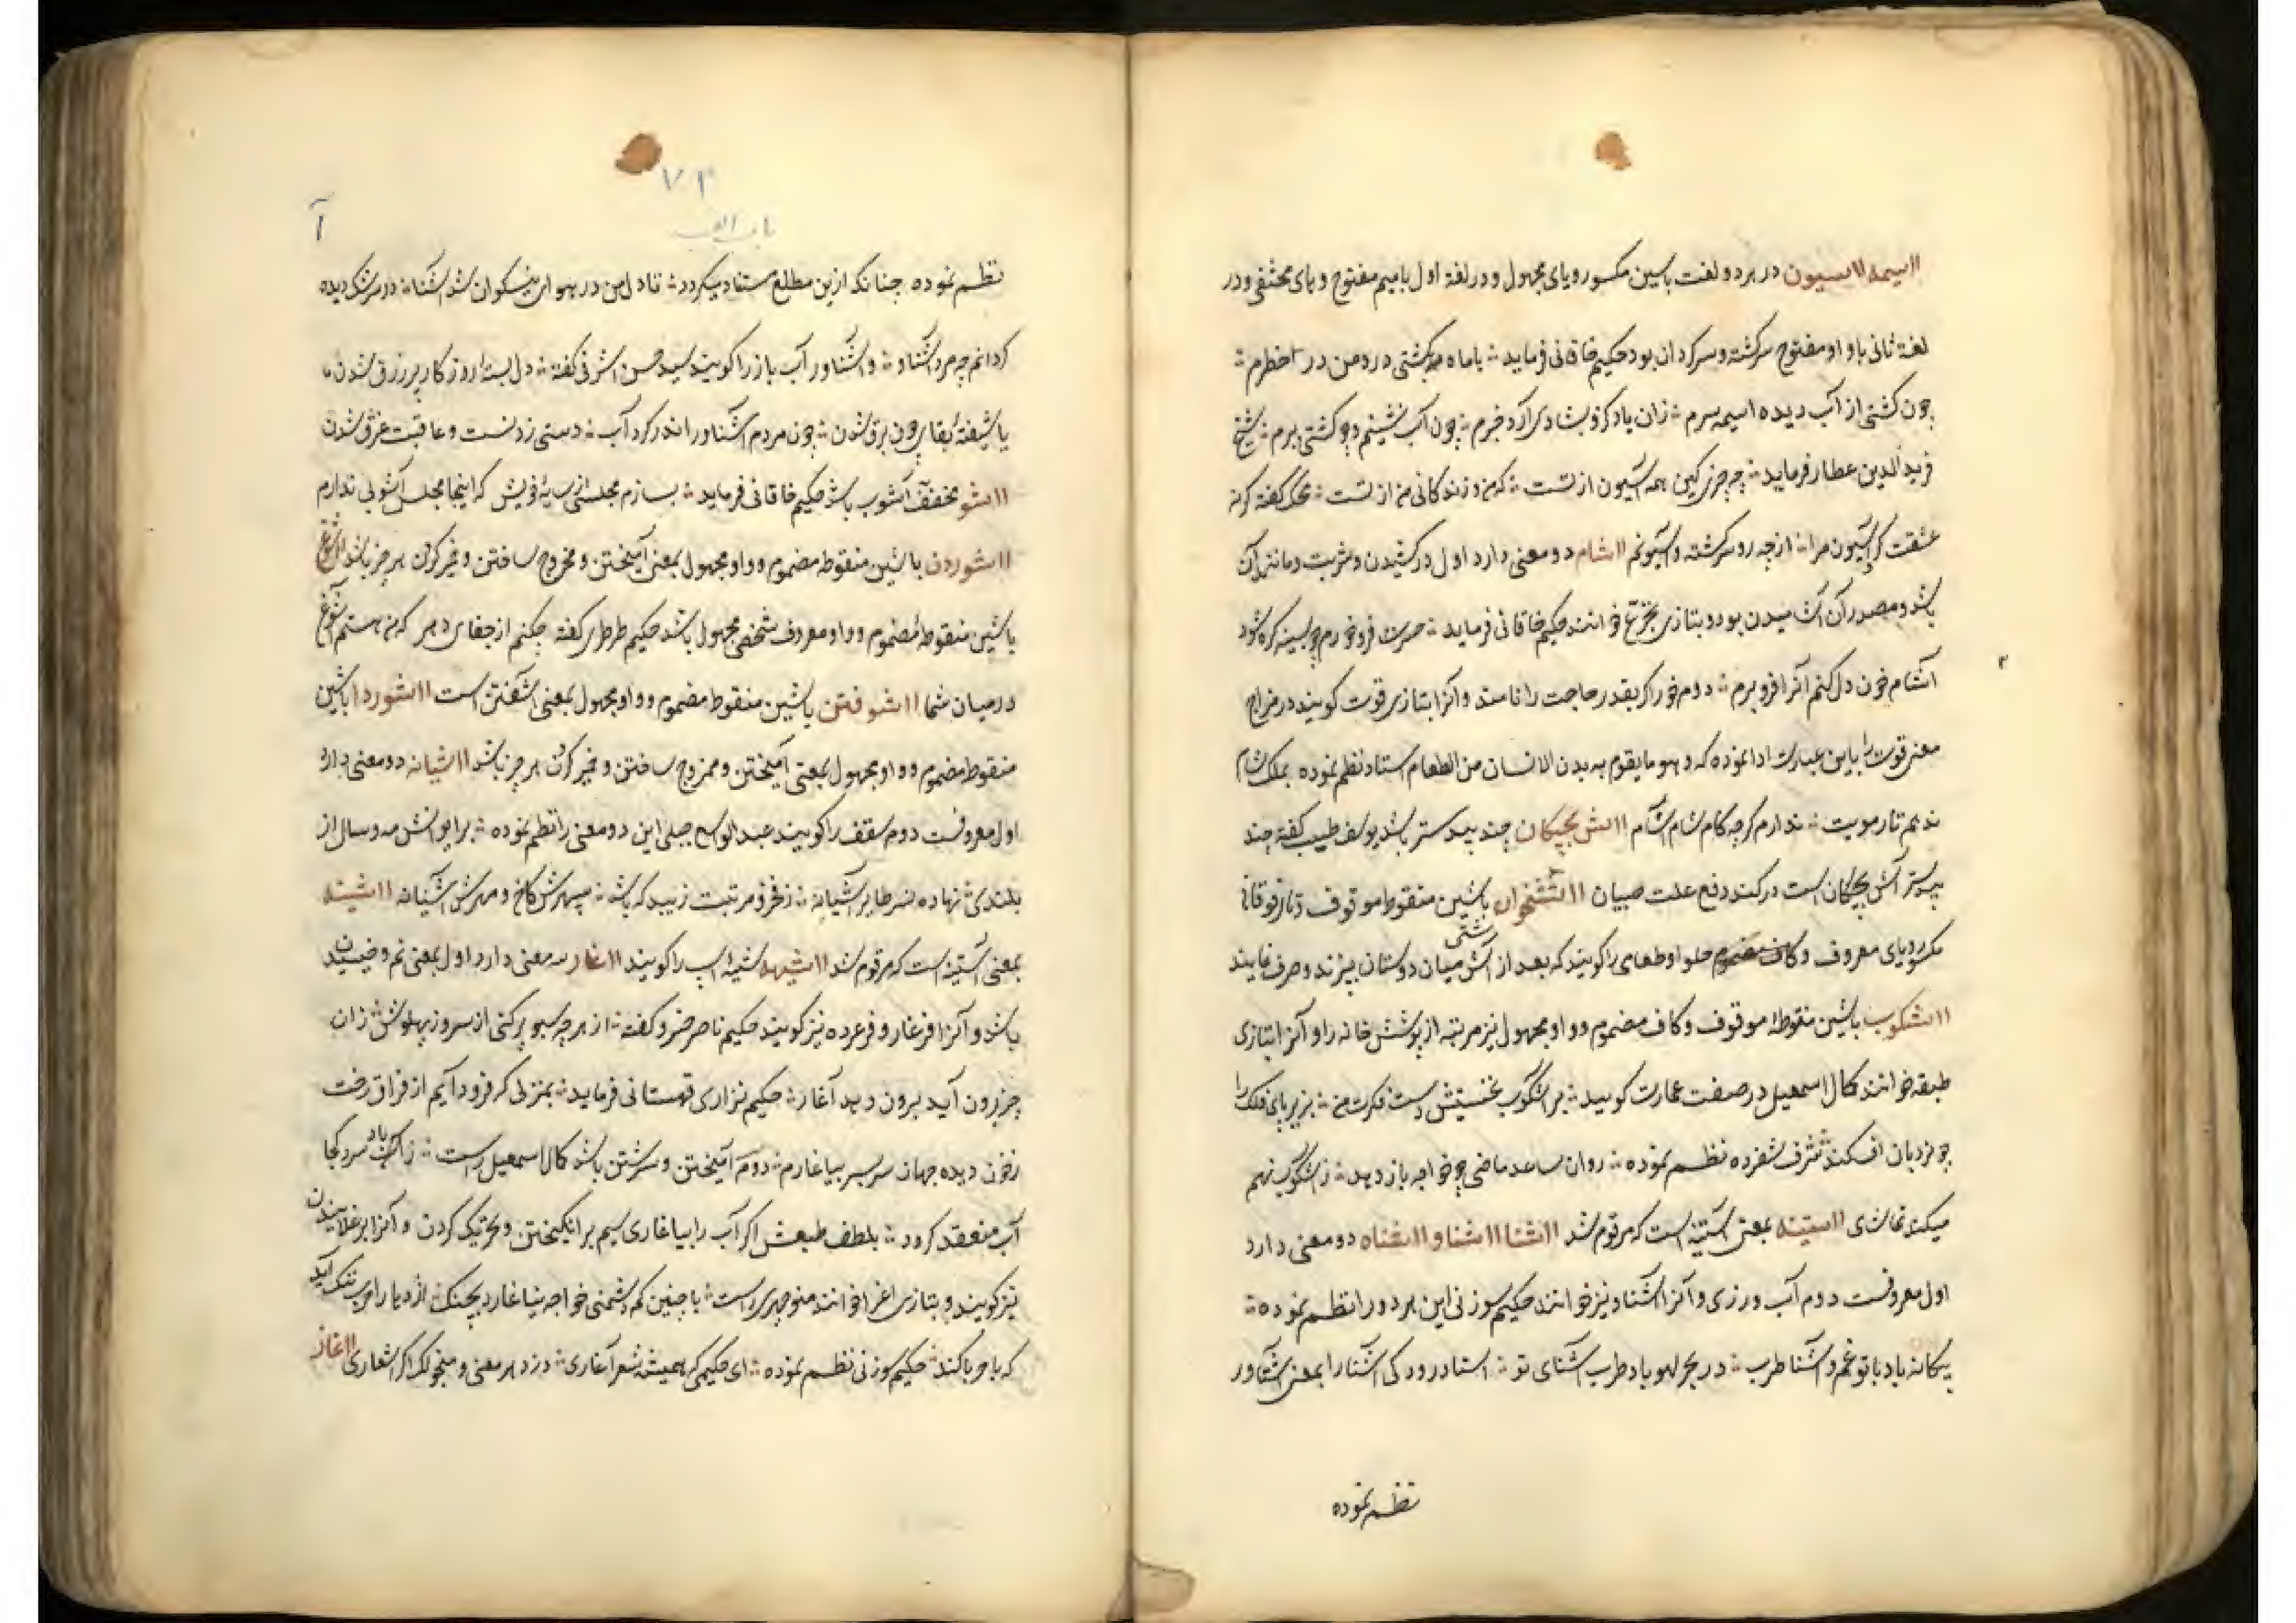 آسیمه آسیون در هر دو لغت باسین مکسور و یای مجهول و در لغة اول با میم مفتوح و های مختفی و در
لغة ثانی با واو مفتوح سرکشته و سرکردان بود حکیم خاقانی فرماید با ماه به کشتی در و من در خطرم
چون کشتی از آب دیده آسیمه سرم زان باد کزو بشادی آرد خبرم چون آب نشینم و چو کشتی بپرم شیخ
فرید الدین عطار فرماید چه چیزی کین همه آسیون از تست که و زندکانی من از تست کفته کرنه
عشقت کرد آسیون مرا از چه رو سرکشته و آسیونم آشام دو معنی دارد اول در کشیدن و شربت و مانند آن
باشد و مصدر آن آشامیدن بود و بتازی تجرع خوانند حکیم خاقانی فرماید حسرت فرو خورم چو بسینه کره شود
آشام خون دل کنم آنرا فرو برم دوم خوراک بقدر حاجت را نامند و آنرا بتازی قوت کویند در
معنی قوت را باین عبارت ادا نموده که و هو ما یقوم به بدن الانسان من الطعام استاد نظم نموده بملک شام
ندهم تار مویت ندارم کرچه کام شام آشام آش بچکان جند بیدستر باشد یوسف طبیب کفته جند
بیدستر آش بچکان است در کند دفع علت صبیان باشین منقوطه موقوف و تای فوقانی
مکسور و یای معروف و کاف مضموم حلوا و طعامی را کویند که بعد از آشتی میان دوستان بپزند و صرف نمایند
آشکوب باشین منقوطه موقوف و کاف مضموم و واو مجهول نیز مرتبه از پوشش خانه را و آنرا بتازی
طبقه خوانند کمال اسمعیل در صفت عمارت کوید بر آشکوب نخستینش دست فکرت من بزیر پای فلک را
چو نردبان افکند شرف شفرده نظم نموده روان ساعد ماضی چو خواجه باز دید ز آشکوب نهم
میکند تماشای آشینه بمعنی آستینه است که مرقوم شد آشنا آشناو آشناه دو معنی دارد
اول معروفست دوم آب ورزی و آنرا آشناو نیز خوانند حکیم سوزنی این هر دو را نظم نموده
بیکانه باد با تو غم و آشنا طرب در بحر لهو باد طرب آشنای تو استاد رودکی آشنا را بمعنی آشناور
نظم نموده
۷۳
باب الف
آ
نظم نموده چنانکه ازین مطلع مستفاد میکردد تا دل من در هوای نیکوان شد آشنا در سرشک دیده
کردانم چو مرد آشناو و آشناور آب باز را کویند سید حسن اشرفی کفته دل بسته روزکار پر زرق شدن
یا شیفته بقای چون برق شدن چون مردم آشناور اندر کرد آب دستی زدنست و عاقبت غرق شدن
آشو مخفف آشوب باشد حکیم خاقانی فرماید بسازم مجلسی از سایه خویش که اینجا مجلس آشوبی ندارم
آشوردن باشین منقوطه مضموم و واو مجهول بمعنی آمیختن و ممزوج ساختن و خمیر کردن هر چیز باشد آشوغ
باشین منقوطه مضموم و واو معروف شخص مجهول باشد حکیم طرطری کفته چکنم از جفای دهر که من هستم آشوغ
در میان شما آشوفتن باشین منقوط مضموم و واو مجهول بمعنی آشفتن است آشوردا باشین
منقوط مضموم و واو مجهول بمعنی آمیختن و ممزوج ساختن و خمیر کردن هر چیز باشد آشیانه دو معنی دارد
اول معروفست دوم سقف را کویند عبد الواسع جبلی این دو معنی را نظم نموده بر ایوانش مه و سال از
بلندی نهاده نسر طایر آشیانه ز فخر و مرتبت زیبد که باشد سپهرش کاخ و مهرش آشیانه آشینه
بمعنی آستینه است که مرقوم شد آشیهه شیهه اسب را کویند آغار سه معنی دارد اول بمعنی نم و خیسیدن
باشد و آنرا فرغار و فرغرده نیز کویند حکیم ناصر خسرو کفته از هر چه سبو پر کنی از سر و ز پهلوش زان
چیز برون آید برون دهد آغار حکیم نزاری قهستانی فرماید بمنزلی که فرود آیم از فراق رخت
زخون دیده جهان سر بسر بیاغارم دوم آمیختن و سرشتن باشد کمال اسمعیل راست زانک باد سرد کجا
آب منعقد کردد بلطف طبعش اکر آب را بیاغاری سیم برانکیختن و تحریک کردن و آنرا برغلانیدن
نیز کویند و بتازی اغرا خوانند منوچهری راست با چنین کم دشمنی خواجه نیاغارد بجنک اژدها را حرب ننک آید
که با حربا کند حکیم سوزنی نظم نموده ای حکیمی که همیشه شعر آغاری دزد هر معنی و منحولک اکر اشعاری آغاز